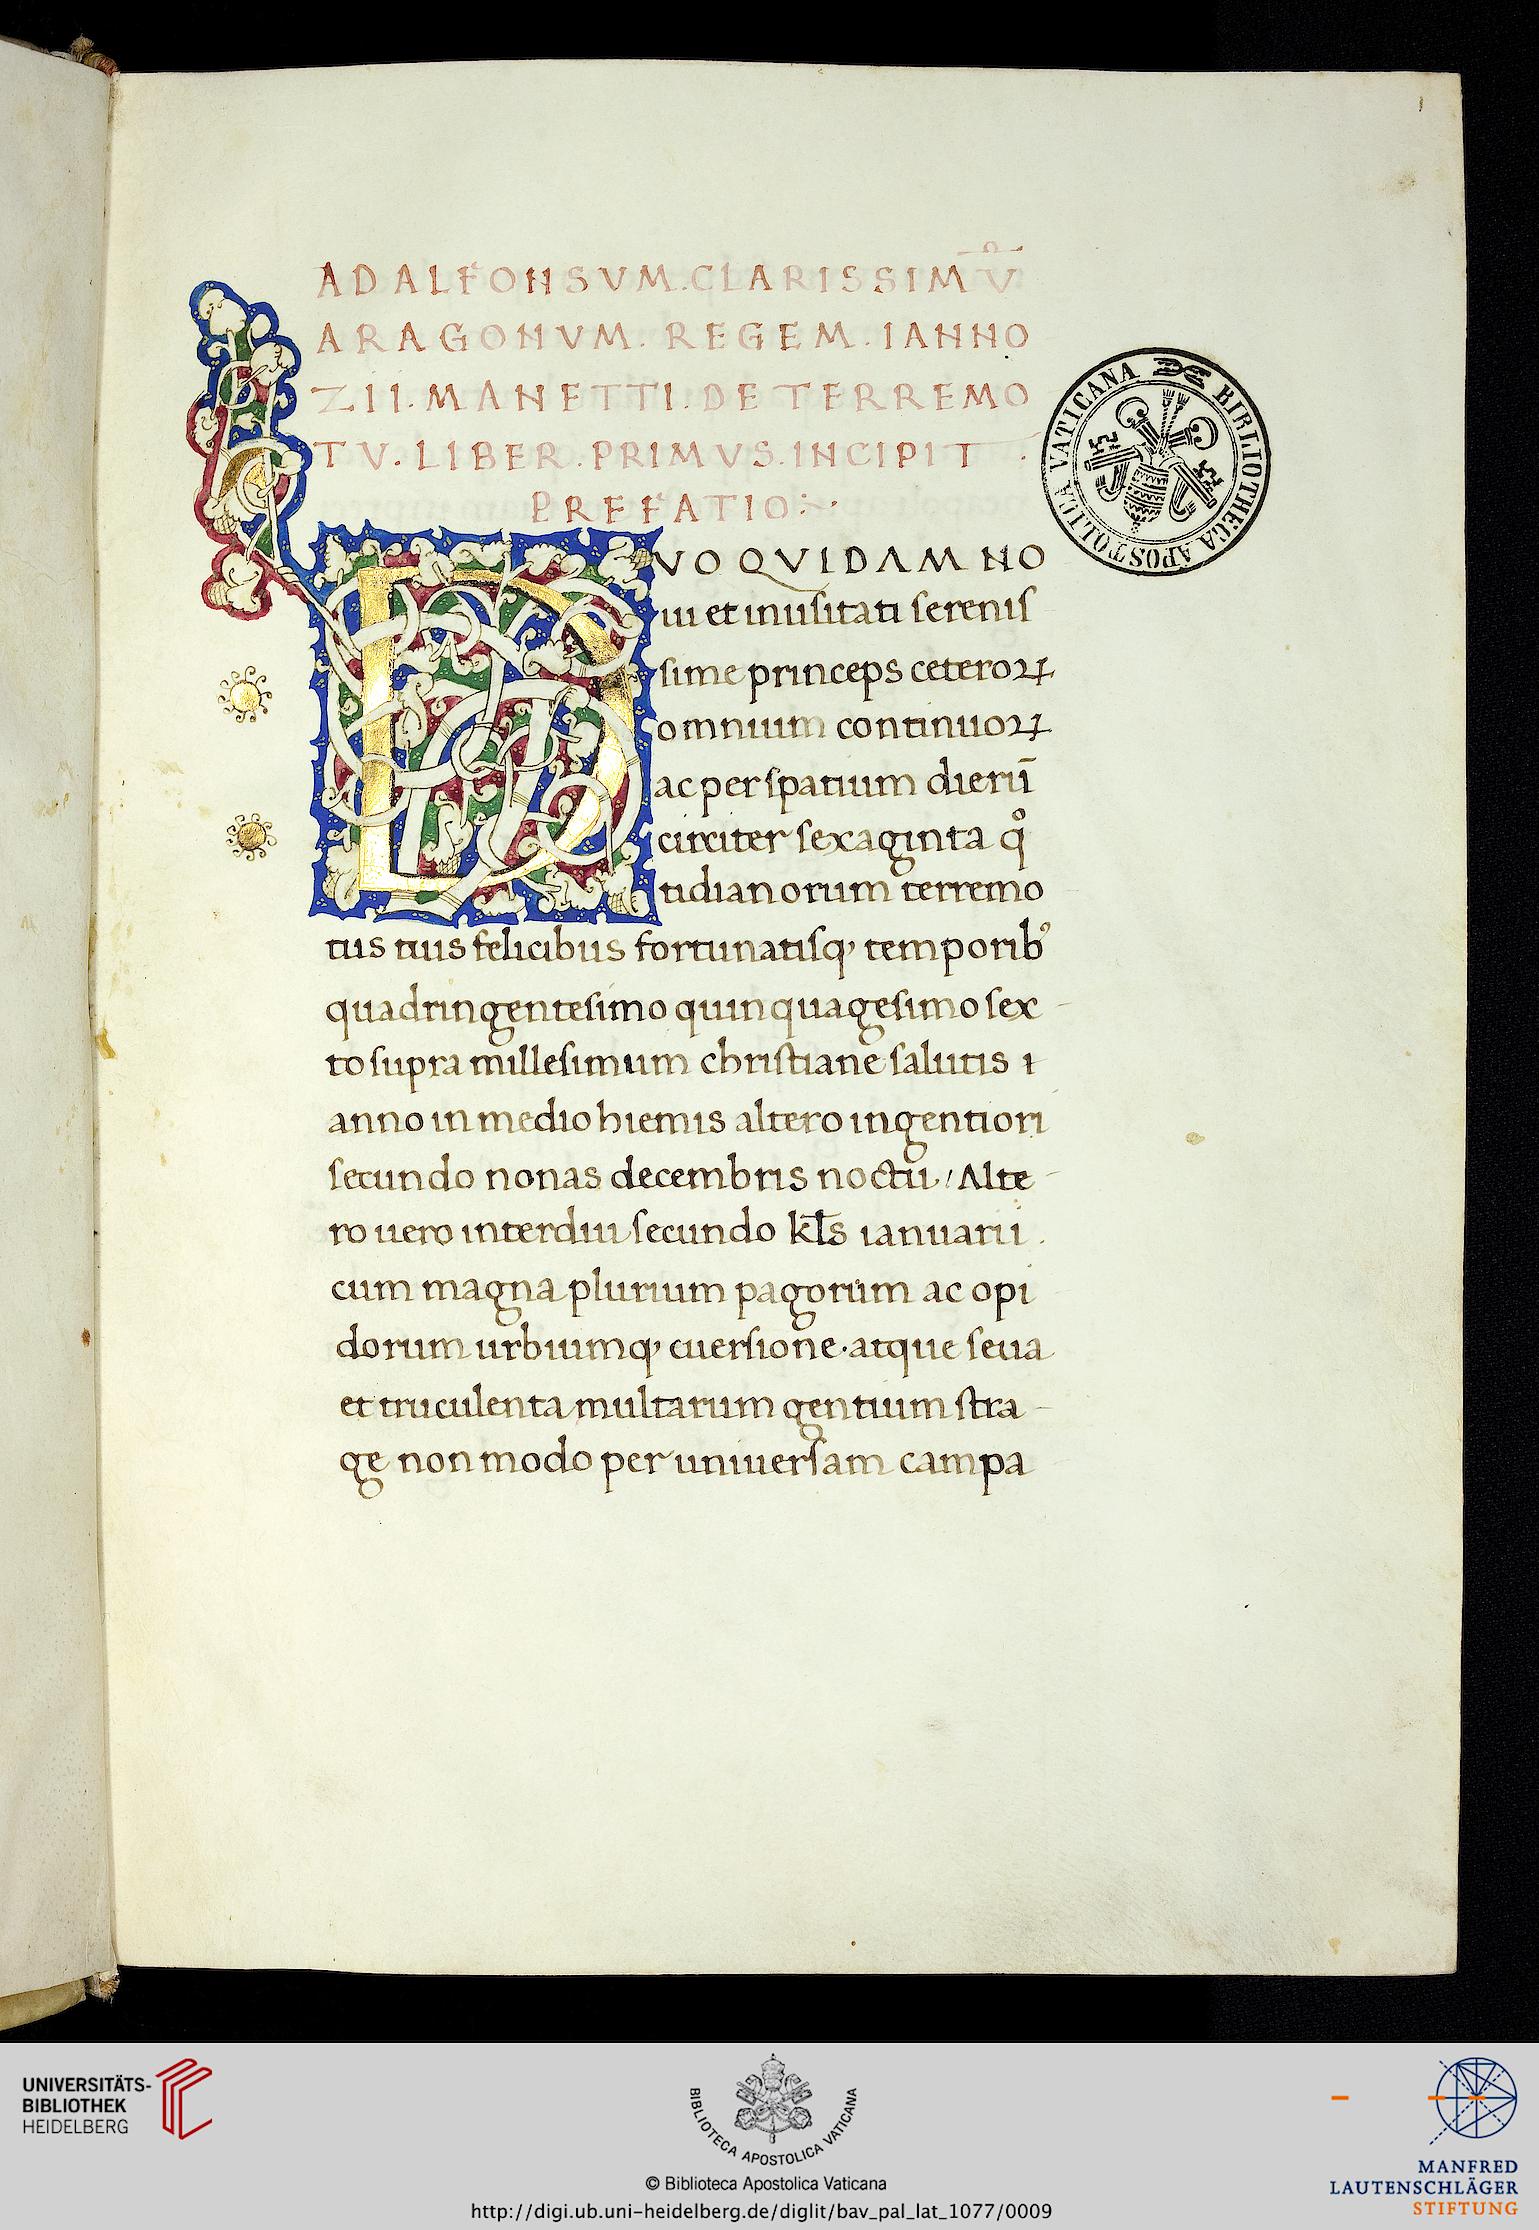 1
AD ALFONSVM. CLARISSIMV̄
ARAGONVM. REGEM. IANNO
ZII. MANETTI. DE TERREMO
TV. LIBER. PRIMVS. INCIPIT
PREFATIO:
DVO QVIDAM NO
ui et inusitati serenis
sime princeps ceteroꝝ
omnium continuoꝝ
ac per spatium dierū
circiter sexaginta qͦ
tidianorum terremo
tus tuis felicibus fortunatisqꝫ temporibꝰ
quadringentesimo quinquagesimo sex
to supra millesimum christiane salutis ı
anno in medio hiemis altero ingentiori
secundo nonas decembris noctu / Alte
ro uero interdiu secundo kl̄s ianuarii .
cum magna plurium pagorum ac opi
dorum urbiumqꝫ euersione · atque seua
et truculenta multarum gentium stra
ge non modo per uniuersam campa
BIBLIOTHECA APOSTOLICA VATICANA
UNIVERSITÄTS-
BIBLIOTHEK
HEIDELBERG
BIBLIOTECA APOSTOLICA VATICANA
© Biblioteca Apostolica Vaticana
http://digi.ub.uni-heidelberg.de/diglit/bav_pal_lat_1077/0009
MANFRED
LAUTENSCHLÄGER
STIFTUNG